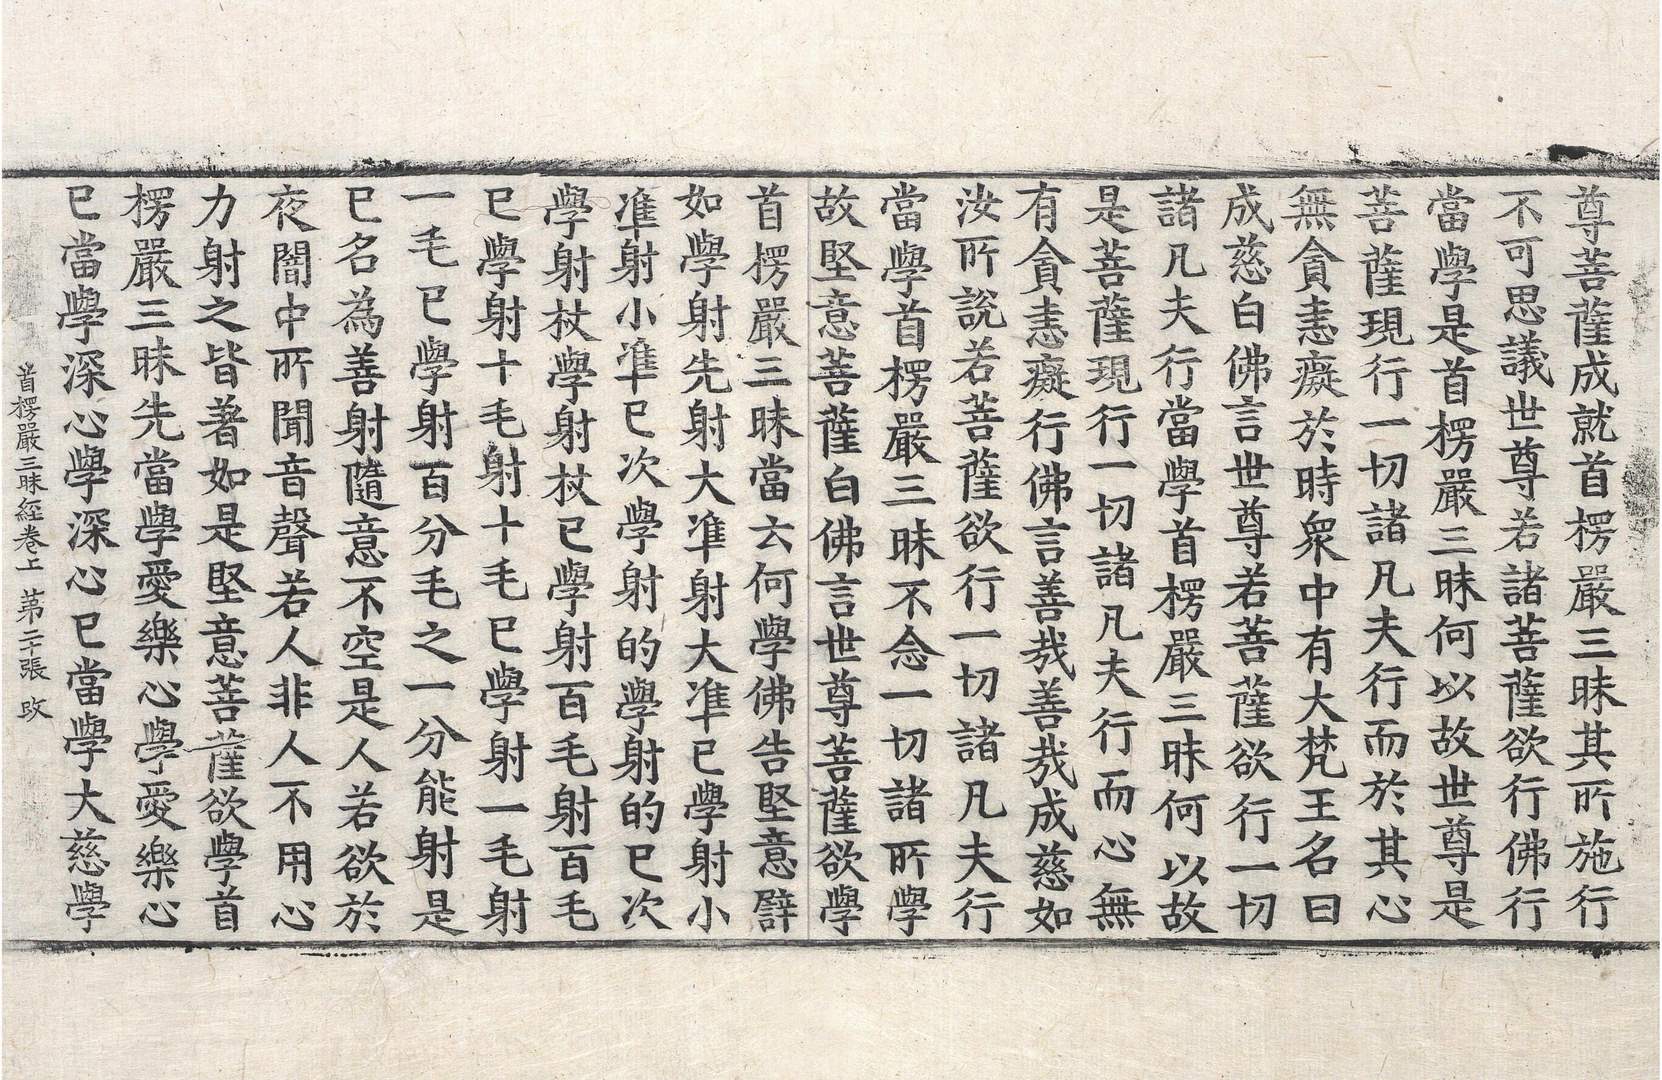 尊菩薩成就首楞嚴三昧其所施行
不可思議世尊若諸菩薩欲行佛行
當學是首楞嚴三昧何以故世尊是
菩薩現行一切諸凡夫行而於其心
無貪恚癡於時衆中有大梵王名曰
成慈白佛言世尊若菩薩欲行一切
諸凡夫行當學首楞嚴三昧何以故
是菩薩現行一切諸凡夫行而心無
有貪恚癡行佛言善哉善哉成慈如
汝所說若菩薩欲行一切諸凡夫行
當學首楞嚴三昧不念一切諸所學
故堅意菩薩白佛言世尊菩薩欲學
首楞嚴三昧當云何學佛告堅意譬
如學射先射大準射大準已學射小
準射小準已次學射的學射的已次
學射杖學射杖已學射百毛射百毛
已學射十毛射十毛已學射一毛射
一毛已學射百分毛之一分能射是
已名為善射隨意不空是人若欲於
夜闇中所聞音聲若人非人不用心
力射之皆著如是堅意菩薩欲學首
楞嚴三昧先當學愛樂心學愛樂心
已當學深心學深心已當學大慈學
首楞嚴三昧經卷上 第二十張 攻